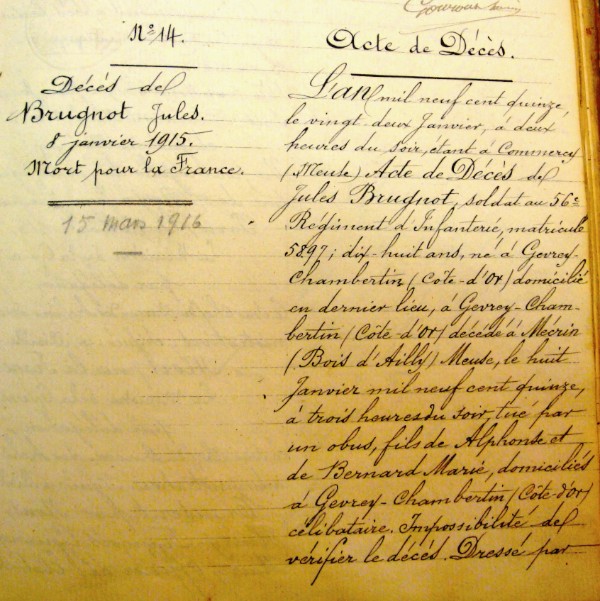 Nº 14.
Décès de
Brugnot Jules.
8 janvier 1915.
Mort pour la France.
15 mars 1916
Acte de Décès.
L'an mil neuf cent quinze,
le vingt deux Janvier, à deux
heures du soir, étant à Commercy
(Meuse) Acte de Décès de
Jules Brugnot, soldat au 56e
Régiment d'Infanterie, matricule
5897; dix-huit ans, né à Gevrey-
Chambertin (Côte-d'Or) domicilié
en dernier lieu, à Gevrey-Cham-
bertin (Côte-d'Or) décédé à Mécrin
(Bois d'Ailly) Meuse, le huit
Janvier mil neuf cent quinze,
à trois heures du soir, tué par
un obus, fils de Alphonse et
de Bernard Marie, domiciliés
à Gevrey-Chambertin (Côte-d'Or)
célibataire. Impossibilité de
vérifier le décès. Dressé par